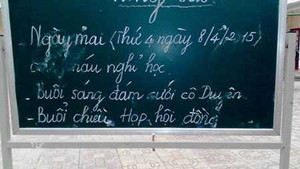 Ngày mai (Thứ 4 ngày 8/4/2015)
cháu nghỉ học
- Buổi sáng đám cưới cô Duyên
- Buổi chiều Họp hội đồng